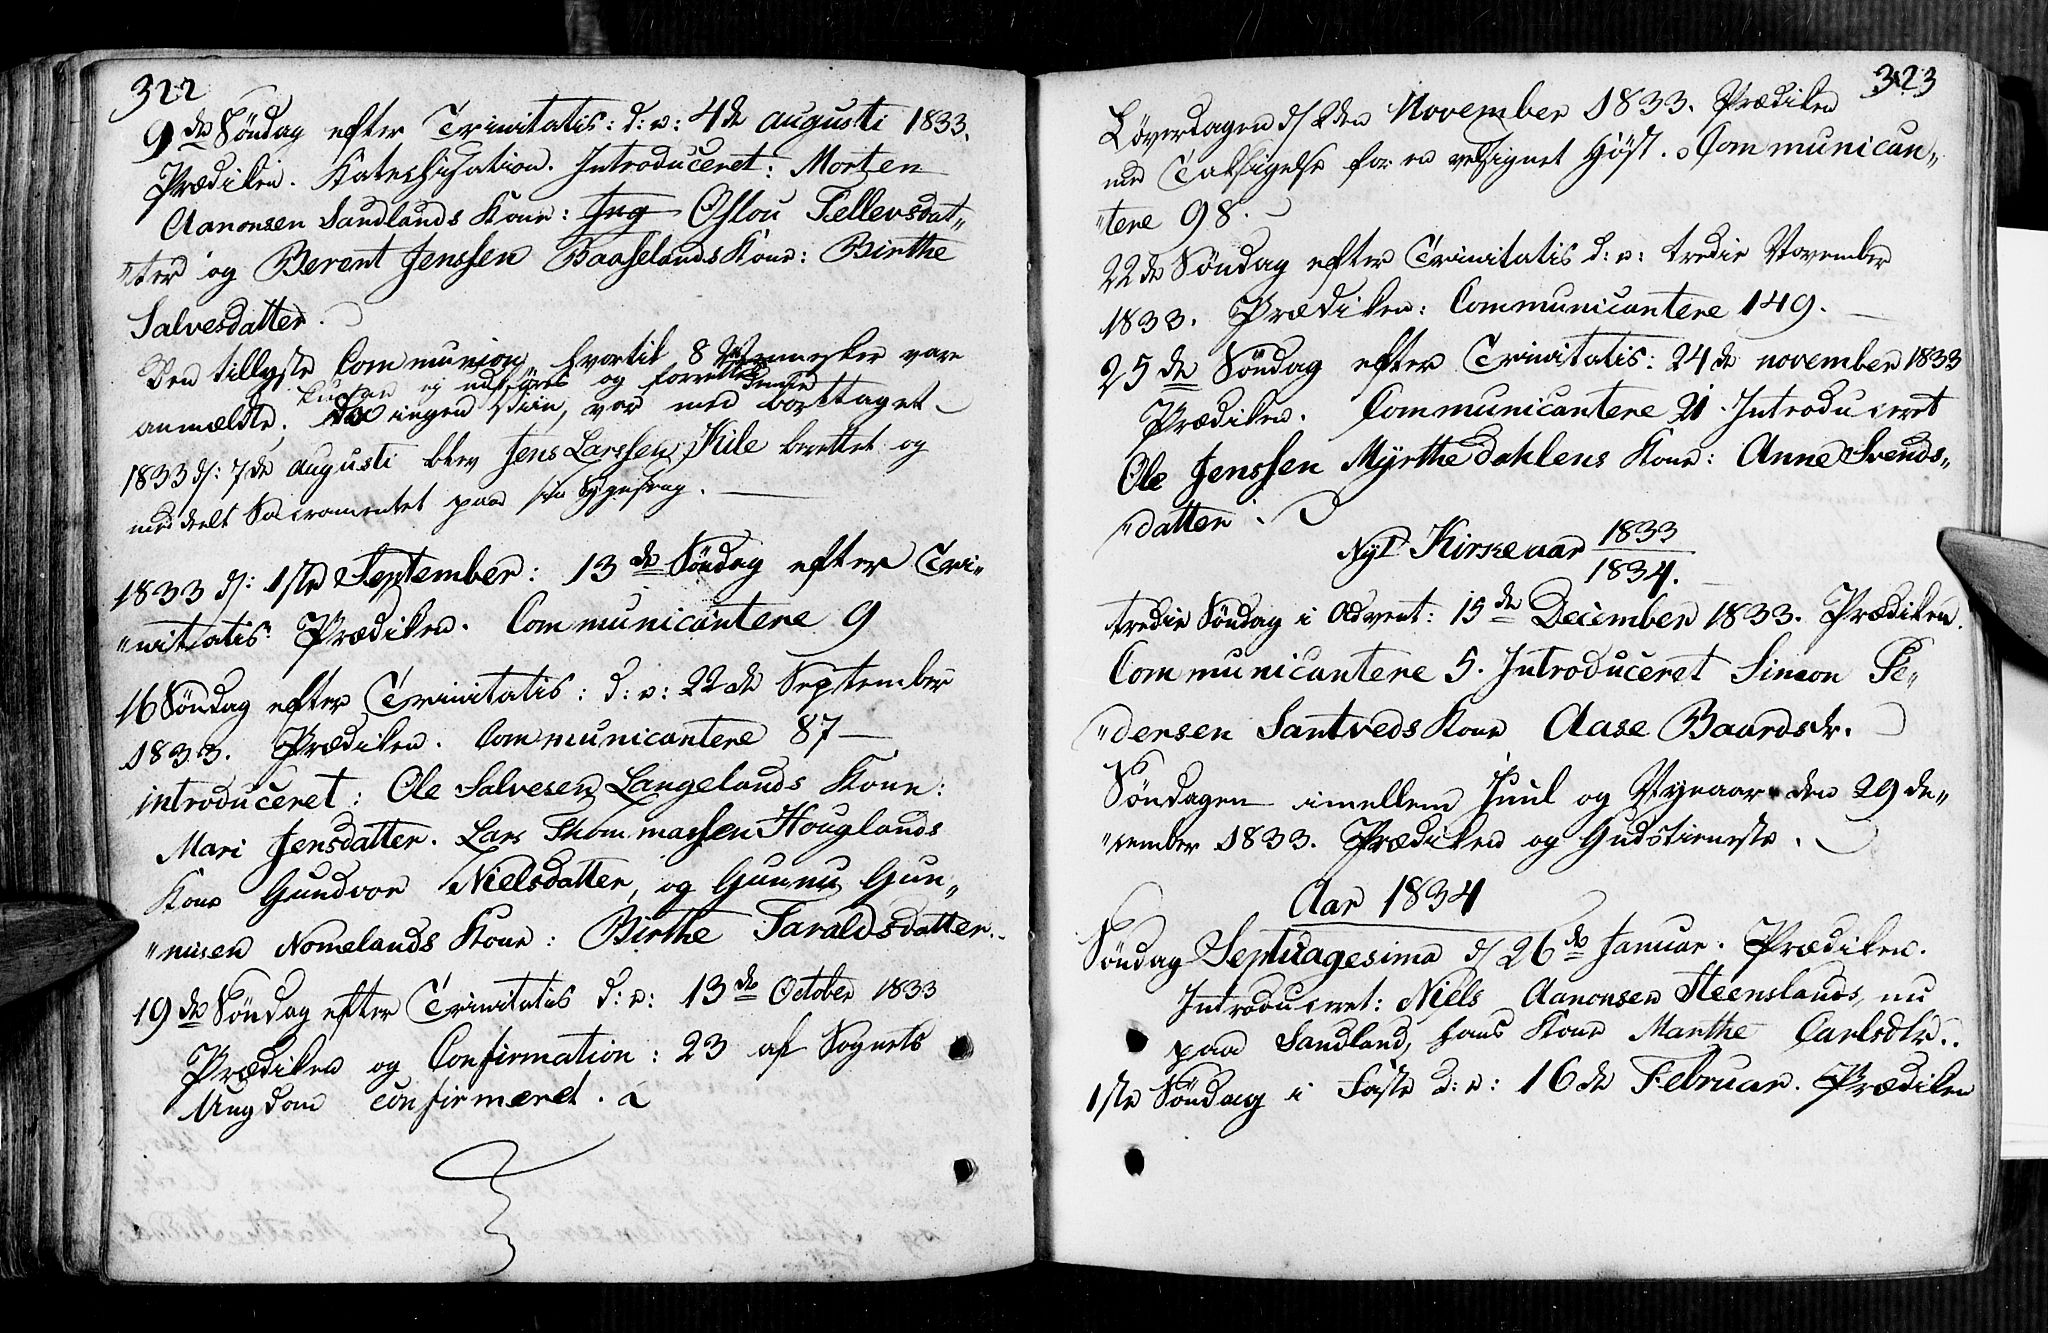 322
9de Søndag efter Trinitatis: d: e: 4de augusti 1833.
Prædiken. Katechisation. Introduceret: Morten
Aanonsen Sandlands Kone: Ing Oslou Tellevsdat„
„ter og Berent Jenssen Baaselands Kone: Birthe
Salvesdatter.
Den tillyste Communion, hvortil 8 Mennesker vare
kunde ej udføres og forrettes
anmældte, da ingen Viin, var med borttaget
1833 d: 7de augusti blev Jens Larssen Kile berettet og
meddeelt Sacramentet paa sin Sygeseng.
1833 d: 1ste September: 13de Søndag efter Tri„
„nitatis Prædiken. Communicantere 9
16 Søndag efter Trinitatis: d: e: 22de September
1833. Prædiken. Communicantere 87
introduceret: Ole Salvesen Langelands Kone:
Mari Jensdatter. Lars Thommassen Houglands
Kone Gundvor Nielsdatter, og Gunnu Gun„
„nusen Nomelands Kone: Birthe Taraldsdatter.
19de Søndag efter Trinitatis d: e: 13de October 1833
Prædiken og Confirmation: 23 af Sognets
Ungdom confirmeret.
323
Løverdagen d/ 2den November 1833. Prædiken
med Taksigelse for en velsignet Høst. Communican„
„tere 98.
22de Søndag efter Trinitatis d: e: tredie November
1833. Prædiken: Communicantere 149.
25de Søndag efter Trinitatis: 24de november 1833
Prædiken. Communicantere 21. Introduceret
Ole Jenssen Myrthedahlens Kone: Anne Svends„
„datter.
Nyt Kirkeaar 1833
1834.
tredie Søndag i Advent: 15de December 1833. Prædiken.
Communicantere 5. Introduceret Simon Pe„
„dersen Santveds Kone Aase Baardsdr.
Søndagen imellem Juul og Nyeaar den 29 de„
„cember 1833. Prædiken og Gudstieneste.
Aar 1834
Søndag Septuagesima d/ 26de Januar. Prædiken.
Introduceret: Niels Aanonsen Steenslands, nu
paa Sandland, hans Kone Marthe Carlsdtr..
1ste Søndag i Faste d: e: 16de Februar. Prædiken